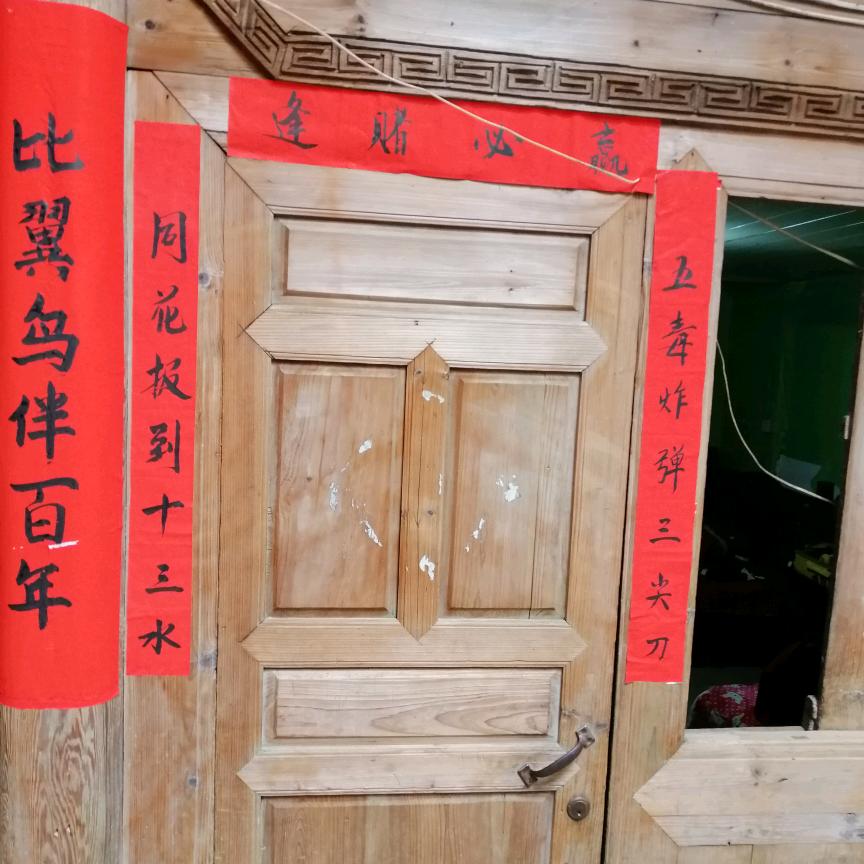 逢赌必赢
比翼鸟伴百年
同花报到十三水
五毒炸弹三尖刀